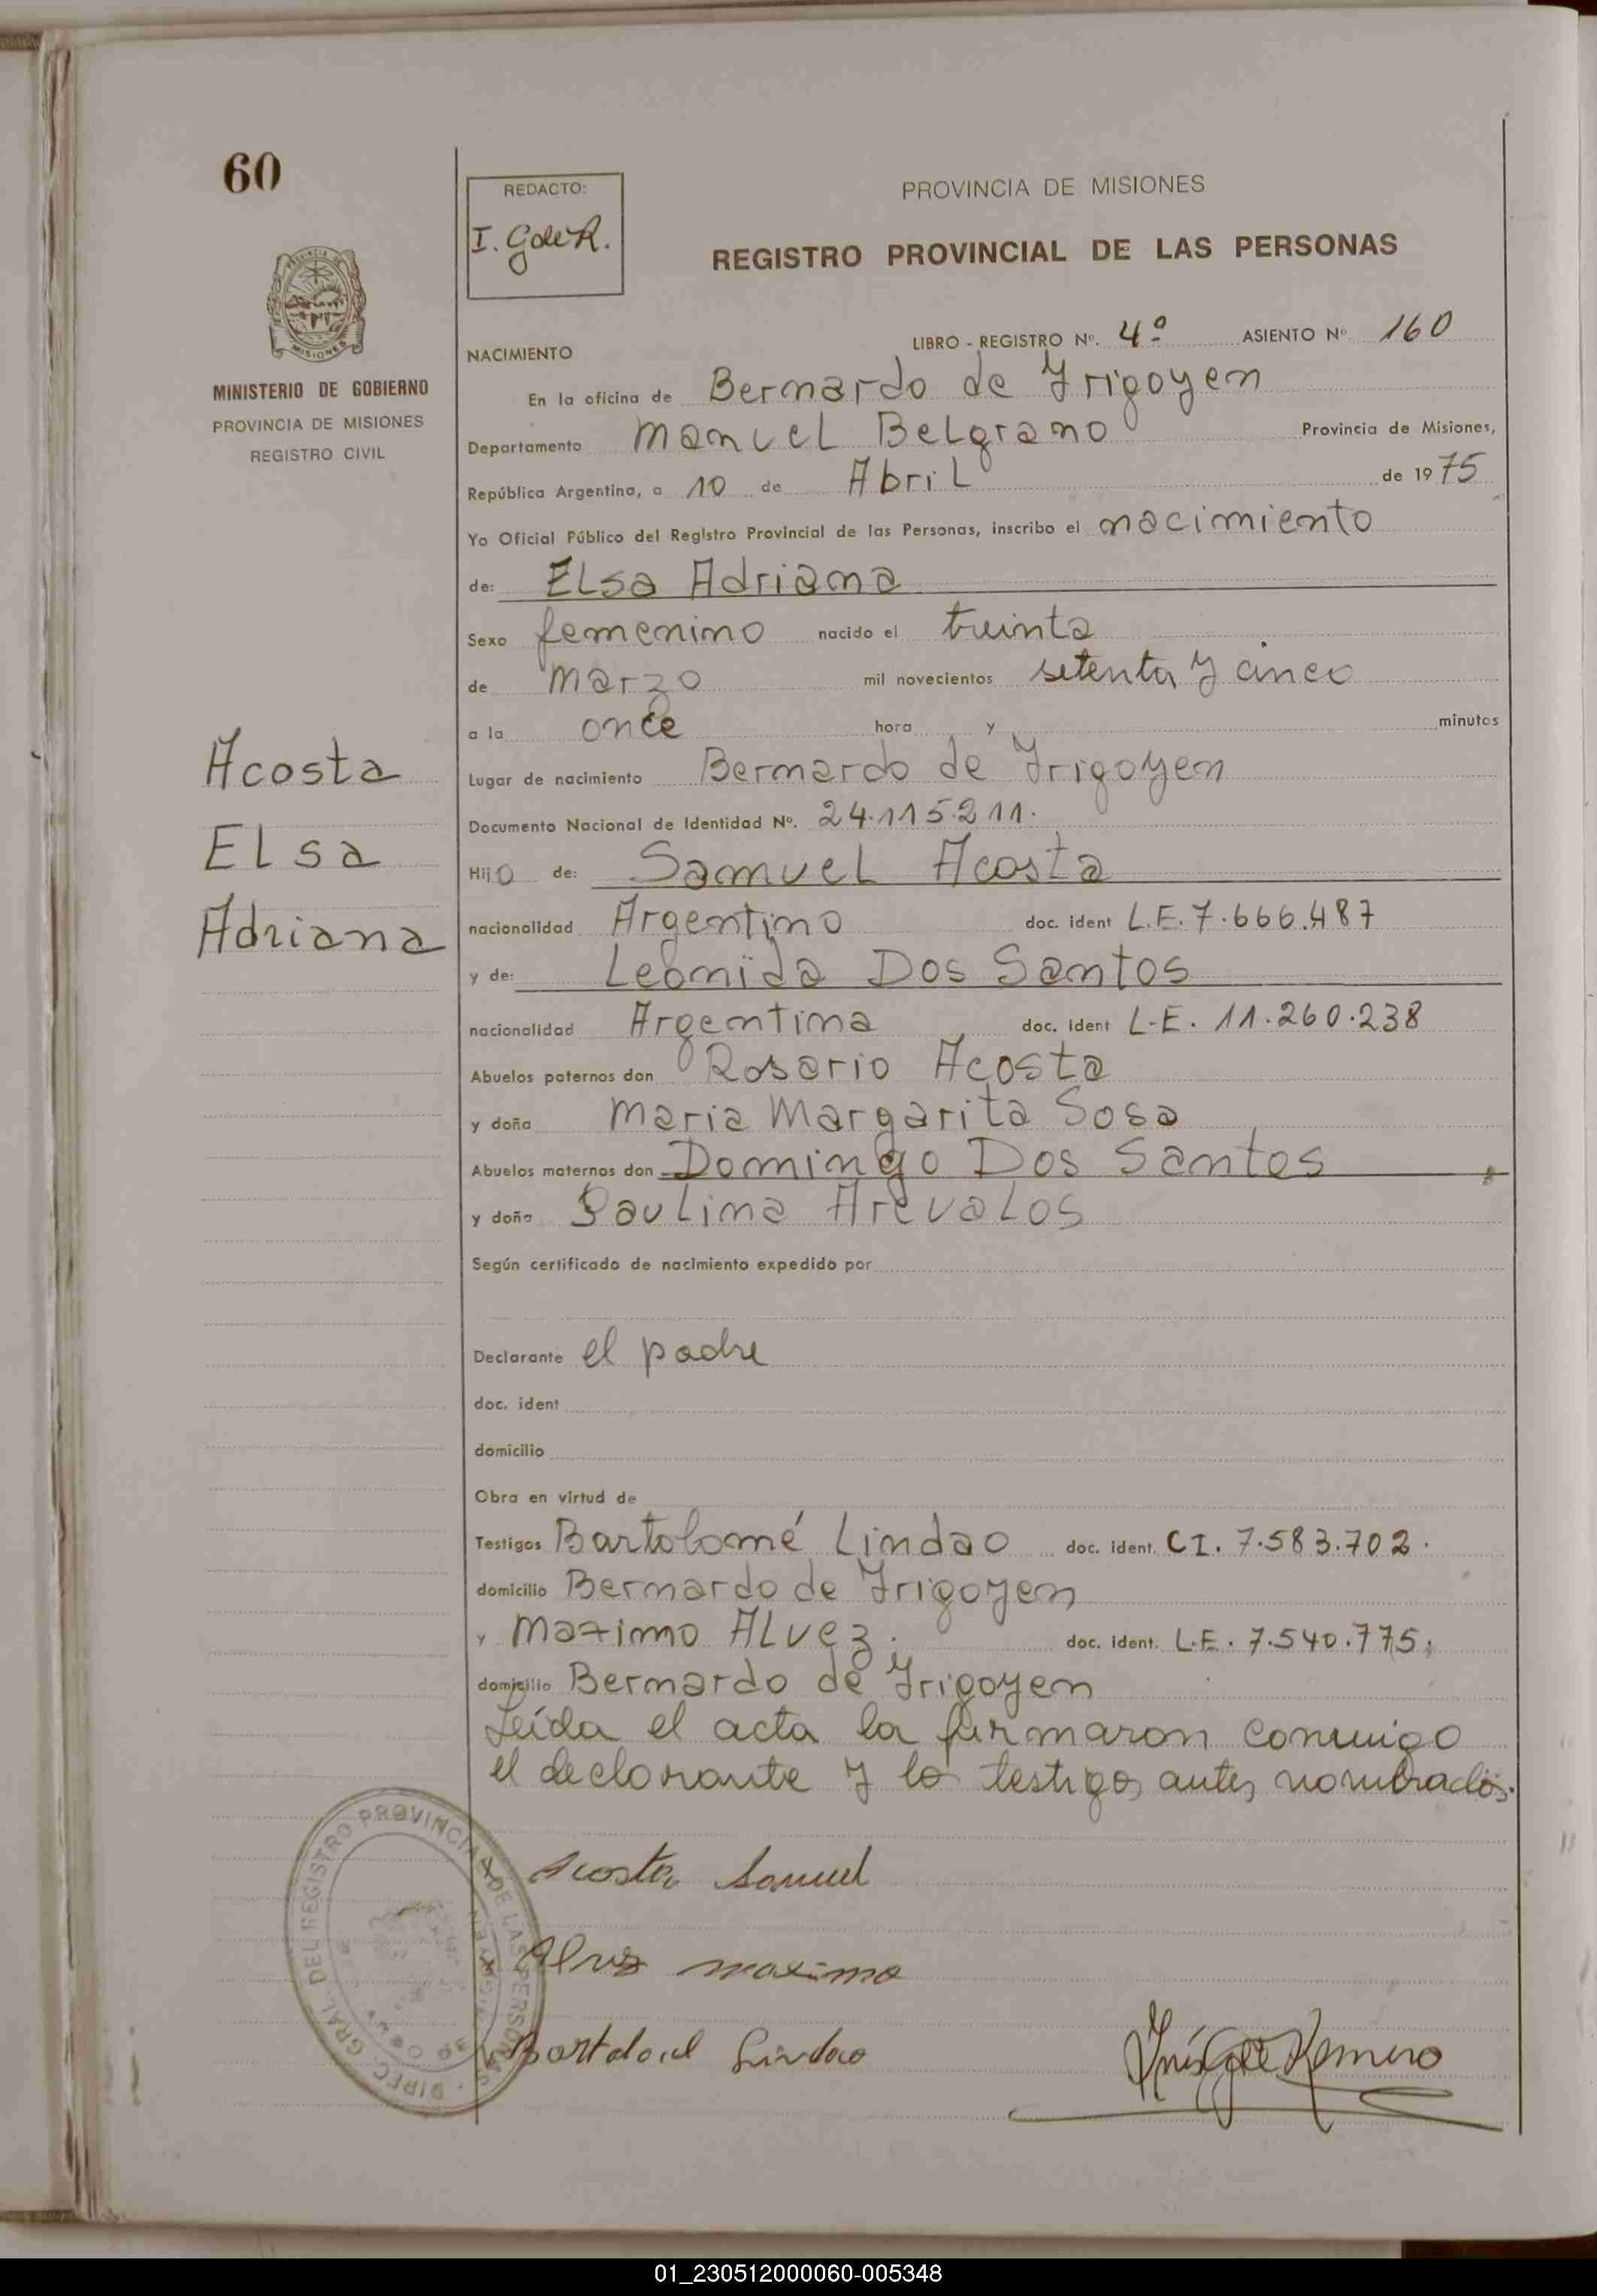 60
REDACTO:
I. G de R.
PROVINCIA DE MISIONES
REGISTRO PROVINCIAL DE LAS PERSONAS
MISIONES
MINISTERIO DE GOBIERNO
PROVINCIA DE MISIONES
REGISTRO CIVIL
NACIMIENTO
LIBRO - REGISTRO Nº. 4º ASIENTO Nº 160
En la oficina de Bernardo de Yrigoyen
Departamento Manuel Belgrano Provincia de Misiones,
República Argentina, a 10 de Abril de 1975
Yo Oficial Público del Registro Provincial de las Personas, inscribo el nacimiento
de: Elsa Adriana
Sexo femenino nacido el treinta
de marzo mil novecientos setenta y cinco
a la once hora y minutos
Acosta
Elsa
Adriana
Lugar de nacimiento Bernardo de Yrigoyen
Documento Nacional de Identidad Nº. 24.115.211.
Hijo de: Samuel Acosta
nacionalidad Argentino doc. ident L.E. 7.666.487
y de: Leonida Dos Santos
nacionalidad Argentina doc. ident L.E. 11.260.238
Abuelos paternos don Rosario Acosta
y doña Maria Margarita Sosa
Abuelos maternos don Domingo Dos Santos
y doña Paulina Arevalos
Según certificado de nacimiento expedido por
Declarante el padre
doc. ident
domicilio
Obra en virtud de
Testigos Bartolomé Lindao doc. ident. CI. 7.583.702.
domicilio Bernardo de Yrigoyen
y Maximo Alvez. doc. ident. L.E. 7.540.775.
domicilio Bernardo de Yrigoyen
Leída el acta la firmaron conmigo
el declarante y lo testigos antes nombrados.
Acosta Samuel
Alvez maximo
Lindao
Inés G de Romero
DIREC. GRAL. DEL REGISTRO PROVINCIAL DE LAS PERSONAS
01_230512000060-005348